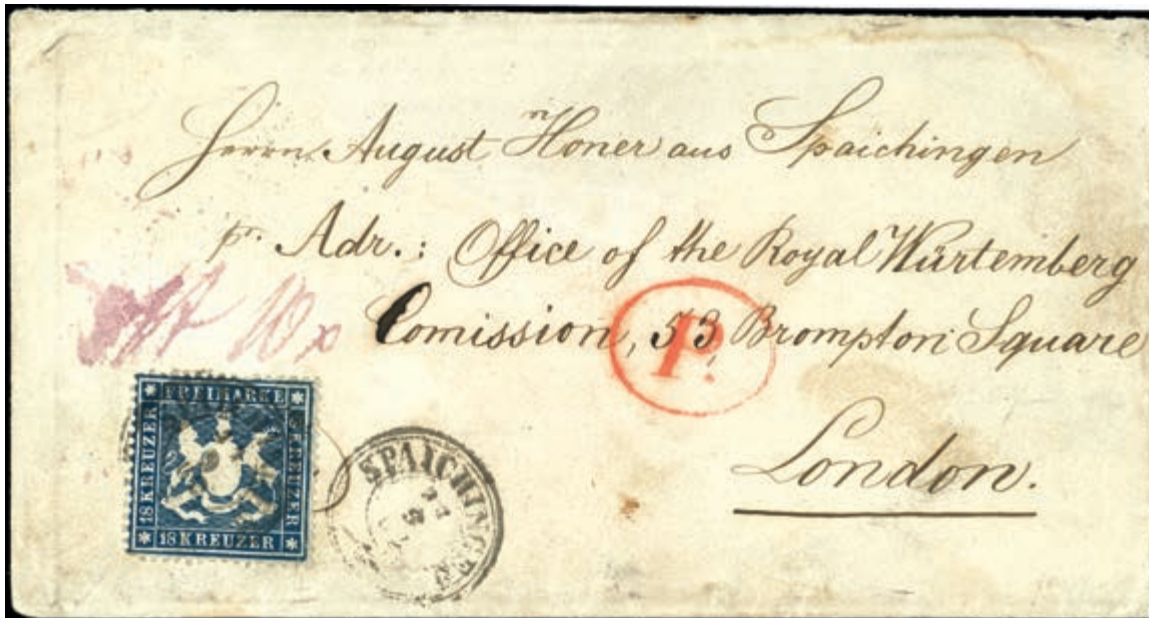 Herrn August Honer aus Spaichingen
pr. Adr.: Office of the Royal Würtemberg
Comission, 53, Brompton Square
London.
P.
FREIMARKE
18 KREUZER
18 KREUZER
18 KREUZER
SPAICHINGEN